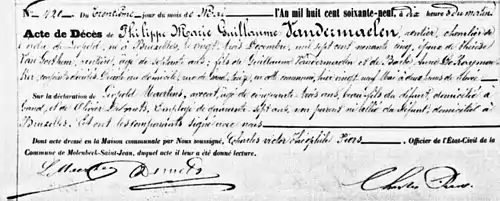 N° 421. Du trentième jour du mois de Mai l'An mil huit cent soixante-neuf, à dix heures du matin
Acte de Décès de Philippe Marie Guillaume Vandermaelen, rentier, chevalier de
l'ordre de Léopold, né à Bruxelles, le vingt trois Décembre, mil sept cent nonante cinq, époux de
Van rentière, âgée de septante ans; fils de Guillaume Vandermaelen et de Barbe Anne De Raymae-
ker, conjoints décédés. Décédé au domicile, rue de en cette commune, hier vingt neuf Mai à deux heures de
Sur la déclaration de Léopold Maertens, avocat, âgé de cinquante trois ans, beau fils du défunt, domicilié à
Gand, et de Olivier employé de cinquante sept ans, non parent ni allié du défunt, domicilié à
Bruxelles. Et ont les comparants signé avec nous.
Dont acte dressé en la Maison communale par Nous soussigné, Charles Victor Théophile Piers, Officier de l'État-Civil de la
Commune de Molenbeek-Saint-Jean, duquel acte il leur a été donné lecture.
L Maertens
Charles Piers